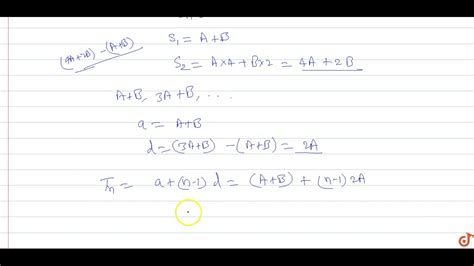 S₁ = A+B
(4A+2B) - (A+B)
S₂ = A×4 + B×2 = 4A + 2B
A+B, 3A+B, ...
a = A+B
d = (3A+B) - (A+B) = 2A
Tₙ = a+(n-1) d = (A+B) + (n-1) 2A